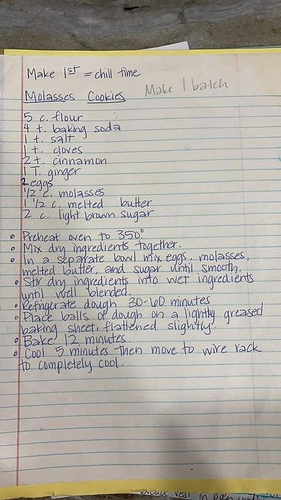 Make 1st = chill time
Make 1 batch
Molasses Cookies
5 c. flour
4 t. baking soda
1 t. salt
1 t. cloves
2 t. cinnamon
1 T. ginger
2 eggs
1/2 c. molasses
1 1/2 c. melted butter
2 c. light brown sugar
• Preheat oven to 350°
• Mix dry ingredients together.
• In a separate bowl mix eggs, molasses,
melted butter, and sugar until smooth.
• Stir dry ingredients into wet ingredients
until well blended.
• Refrigerate dough 30-60 minutes
• Place balls of dough on a lightly greased
baking sheet, flattened slightly.
• Bake 12 minutes.
• Cool 5 minutes then move to wire rack
to completely cool.